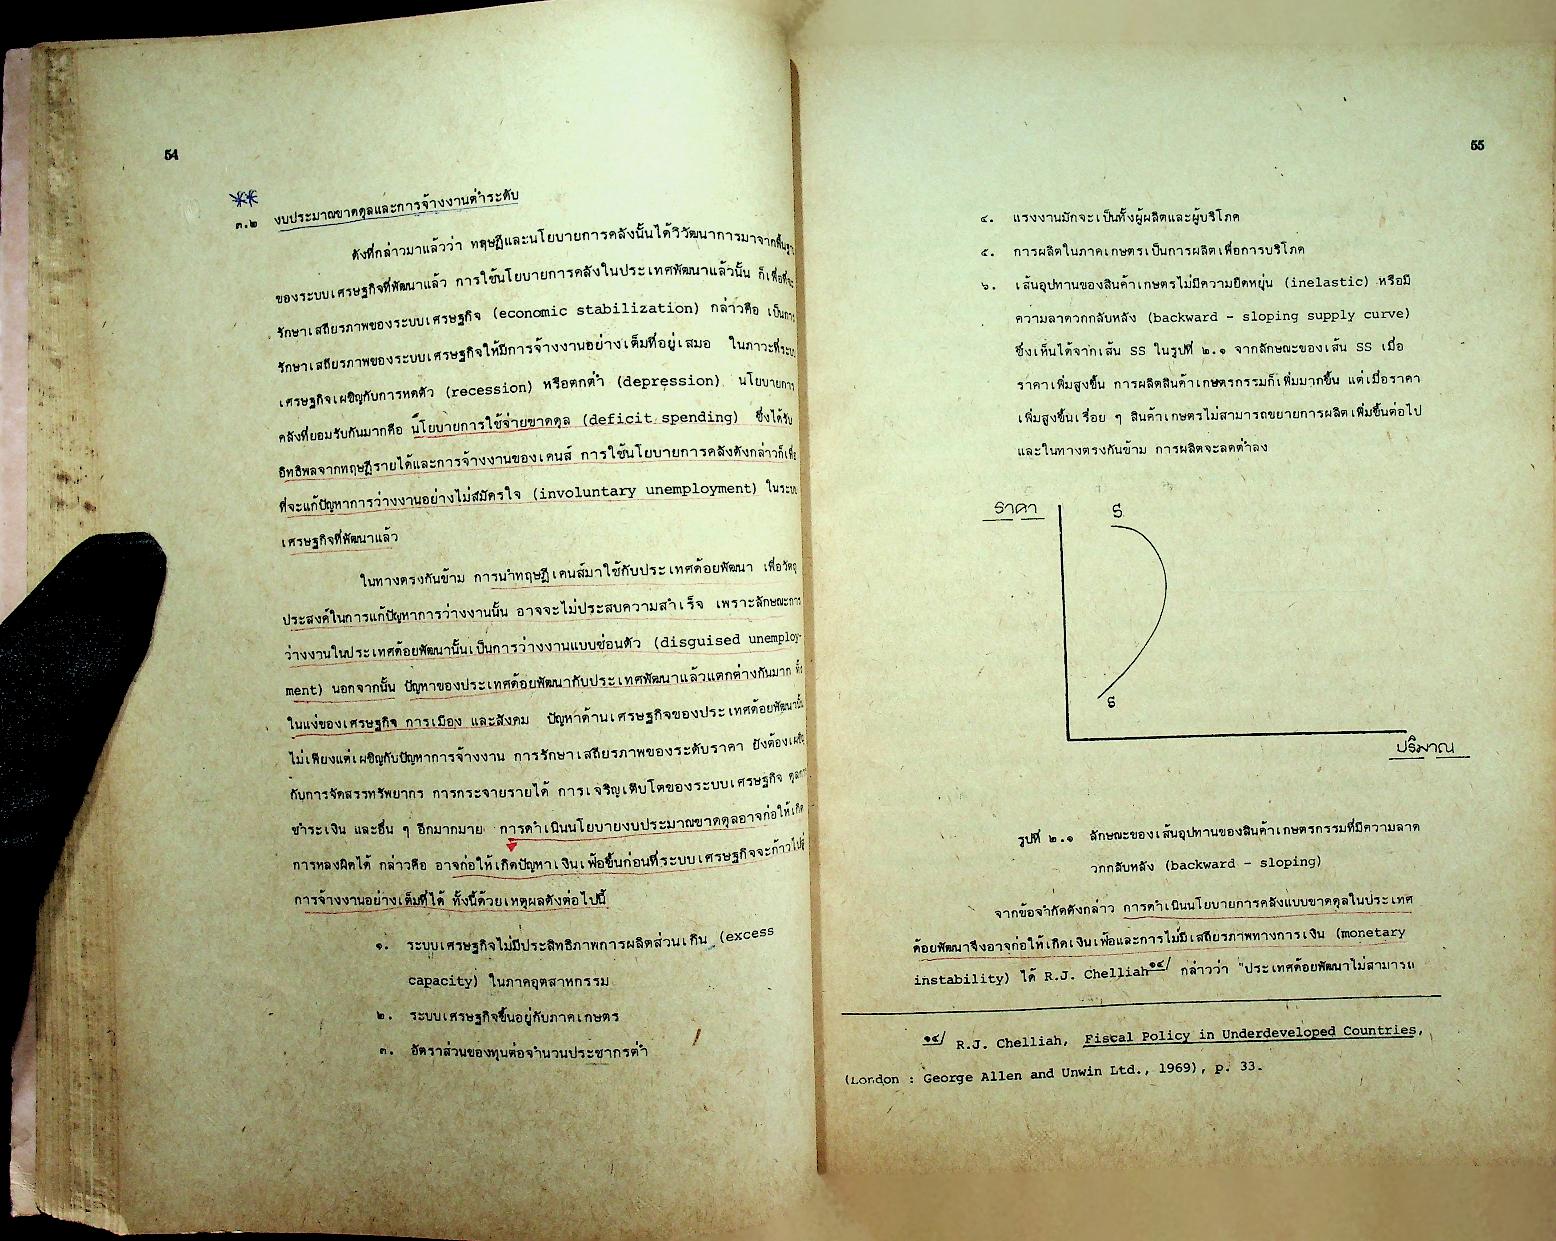 54
**
๓.๒ งบประมาณขาดดุลและการจ้างงานต่ำระดับ
ดังที่กล่าวมาแล้วว่า ทฤษฎีและนโยบายการคลังนั้นได้วิวัฒนาการมาจากพื้นฐาน
ของระบบเศรษฐกิจที่พัฒนาแล้ว การใช้นโยบายการคลังในประเทศพัฒนาแล้วนั้น ก็เพื่อที่จะ
รักษาเสถียรภาพของระบบเศรษฐกิจ (economic stabilization) กล่าวคือ เป็นการ
รักษาเสถียรภาพของระบบเศรษฐกิจให้มีการจ้างงานอย่างเต็มที่อยู่เสมอ ในภาวะที่ระบบ
เศรษฐกิจเผชิญกับการหดตัว (recession) หรือตกต่ำ (depression) นโยบายการ
คลังที่ยอมรับกันมากคือ นโยบายการใช้จ่ายขาดดุล (deficit spending) ซึ่งได้รับ
อิทธิพลจากทฤษฎีรายได้และการจ้างงานของเคนส์ การใช้นโยบายการคลังดังกล่าวก็เพื่อ
ที่จะแก้ปัญหาการว่างงานอย่างไม่สมัครใจ (involuntary unemployment) ในระบบ
เศรษฐกิจที่พัฒนาแล้ว
ในทางตรงกันข้าม การนำทฤษฎีเคนส์มาใช้กับประเทศด้อยพัฒนา เพื่อวัตถุ
ประสงค์ในการแก้ปัญหาการว่างงานนั้น อาจจะไม่ประสบความสำเร็จ เพราะลักษณะการ
ว่างงานในประเทศด้อยพัฒนานั้นเป็นการว่างงานแบบซ่อนตัว (disguised unemploy-
ment) นอกจากนั้น ปัญหาของประเทศด้อยพัฒนากับประเทศพัฒนาแล้วแตกต่างกันมาก ทั้ง
ในแง่ของเศรษฐกิจ การเมือง และสังคม ปัญหาด้านเศรษฐกิจของประเทศด้อยพัฒนานั้น
ไม่เพียงแต่เผชิญกับปัญหาการจ้างงาน การรักษาเสถียรภาพของระดับราคา ยังต้องเผชิญ
กับการจัดสรรทรัพยากร การกระจายรายได้ การเจริญเติบโตของระบบเศรษฐกิจ ดุลการ
ชำระเงิน และอื่น ๆ อีกมากมาย การดำเนินนโยบายงบประมาณขาดดุลอาจก่อให้เกิด
การหลงผิดได้ กล่าวคือ อาจก่อให้เกิดปัญหาเงินเฟ้อขึ้นก่อนที่ระบบเศรษฐกิจจะก้าวไปสู่
การจ้างงานอย่างเต็มที่ได้ ทั้งนี้ด้วยเหตุผลดังต่อไปนี้
๑. ระบบเศรษฐกิจไม่มีประสิทธิภาพการผลิตส่วนเกิน (excess
capacity) ในภาคอุตสาหกรรม
๒. ระบบเศรษฐกิจขึ้นอยู่กับภาคเกษตร
๓. อัตราส่วนของทุนต่อจำนวนประชากรต่ำ
55
๔. แรงงานมักจะเป็นทั้งผู้ผลิตและผู้บริโภค
๕. การผลิตในภาคเกษตรเป็นการผลิตเพื่อการบริโภค
๖. เส้นอุปทานของสินค้าเกษตรไม่มีความยืดหยุ่น (inelastic) หรือมี
ความลาดวกกลับหลัง (backward - sloping supply curve)
ซึ่งเห็นได้จากเส้น SS ในรูปที่ ๒.๑ จากลักษณะของเส้น SS เมื่อ
ราคาเพิ่มสูงขึ้น การผลิตสินค้าเกษตรกรรมก็เพิ่มมากขึ้น แต่เมื่อราคา
เพิ่มสูงขึ้นเรื่อย ๆ สินค้าเกษตรไม่สามารถขยายการผลิตเพิ่มขึ้นต่อไป
และในทางตรงกันข้าม การผลิตจะลดต่ำลง
ราคา
S
S
ปริมาณ
รูปที่ ๒.๑ ลักษณะของเส้นอุปทานของสินค้าเกษตรกรรมที่มีความลาด
วกกลับหลัง (backward - sloping)
จากข้อจำกัดดังกล่าว การดำเนินนโยบายการคลังแบบขาดดุลในประเทศ
ด้อยพัฒนาจึงอาจก่อให้เกิดเงินเฟ้อและการไม่มีเสถียรภาพทางการเงิน (monetary
instability) ได้ R.J. Chelliah๑๔/ กล่าวว่า "ประเทศด้อยพัฒนาไม่สามารถ
๑๔/ R.J. Chelliah, Fiscal Policy in Underdeveloped Countries,
(London : George Allen and Unwin Ltd., 1969), p. 33.